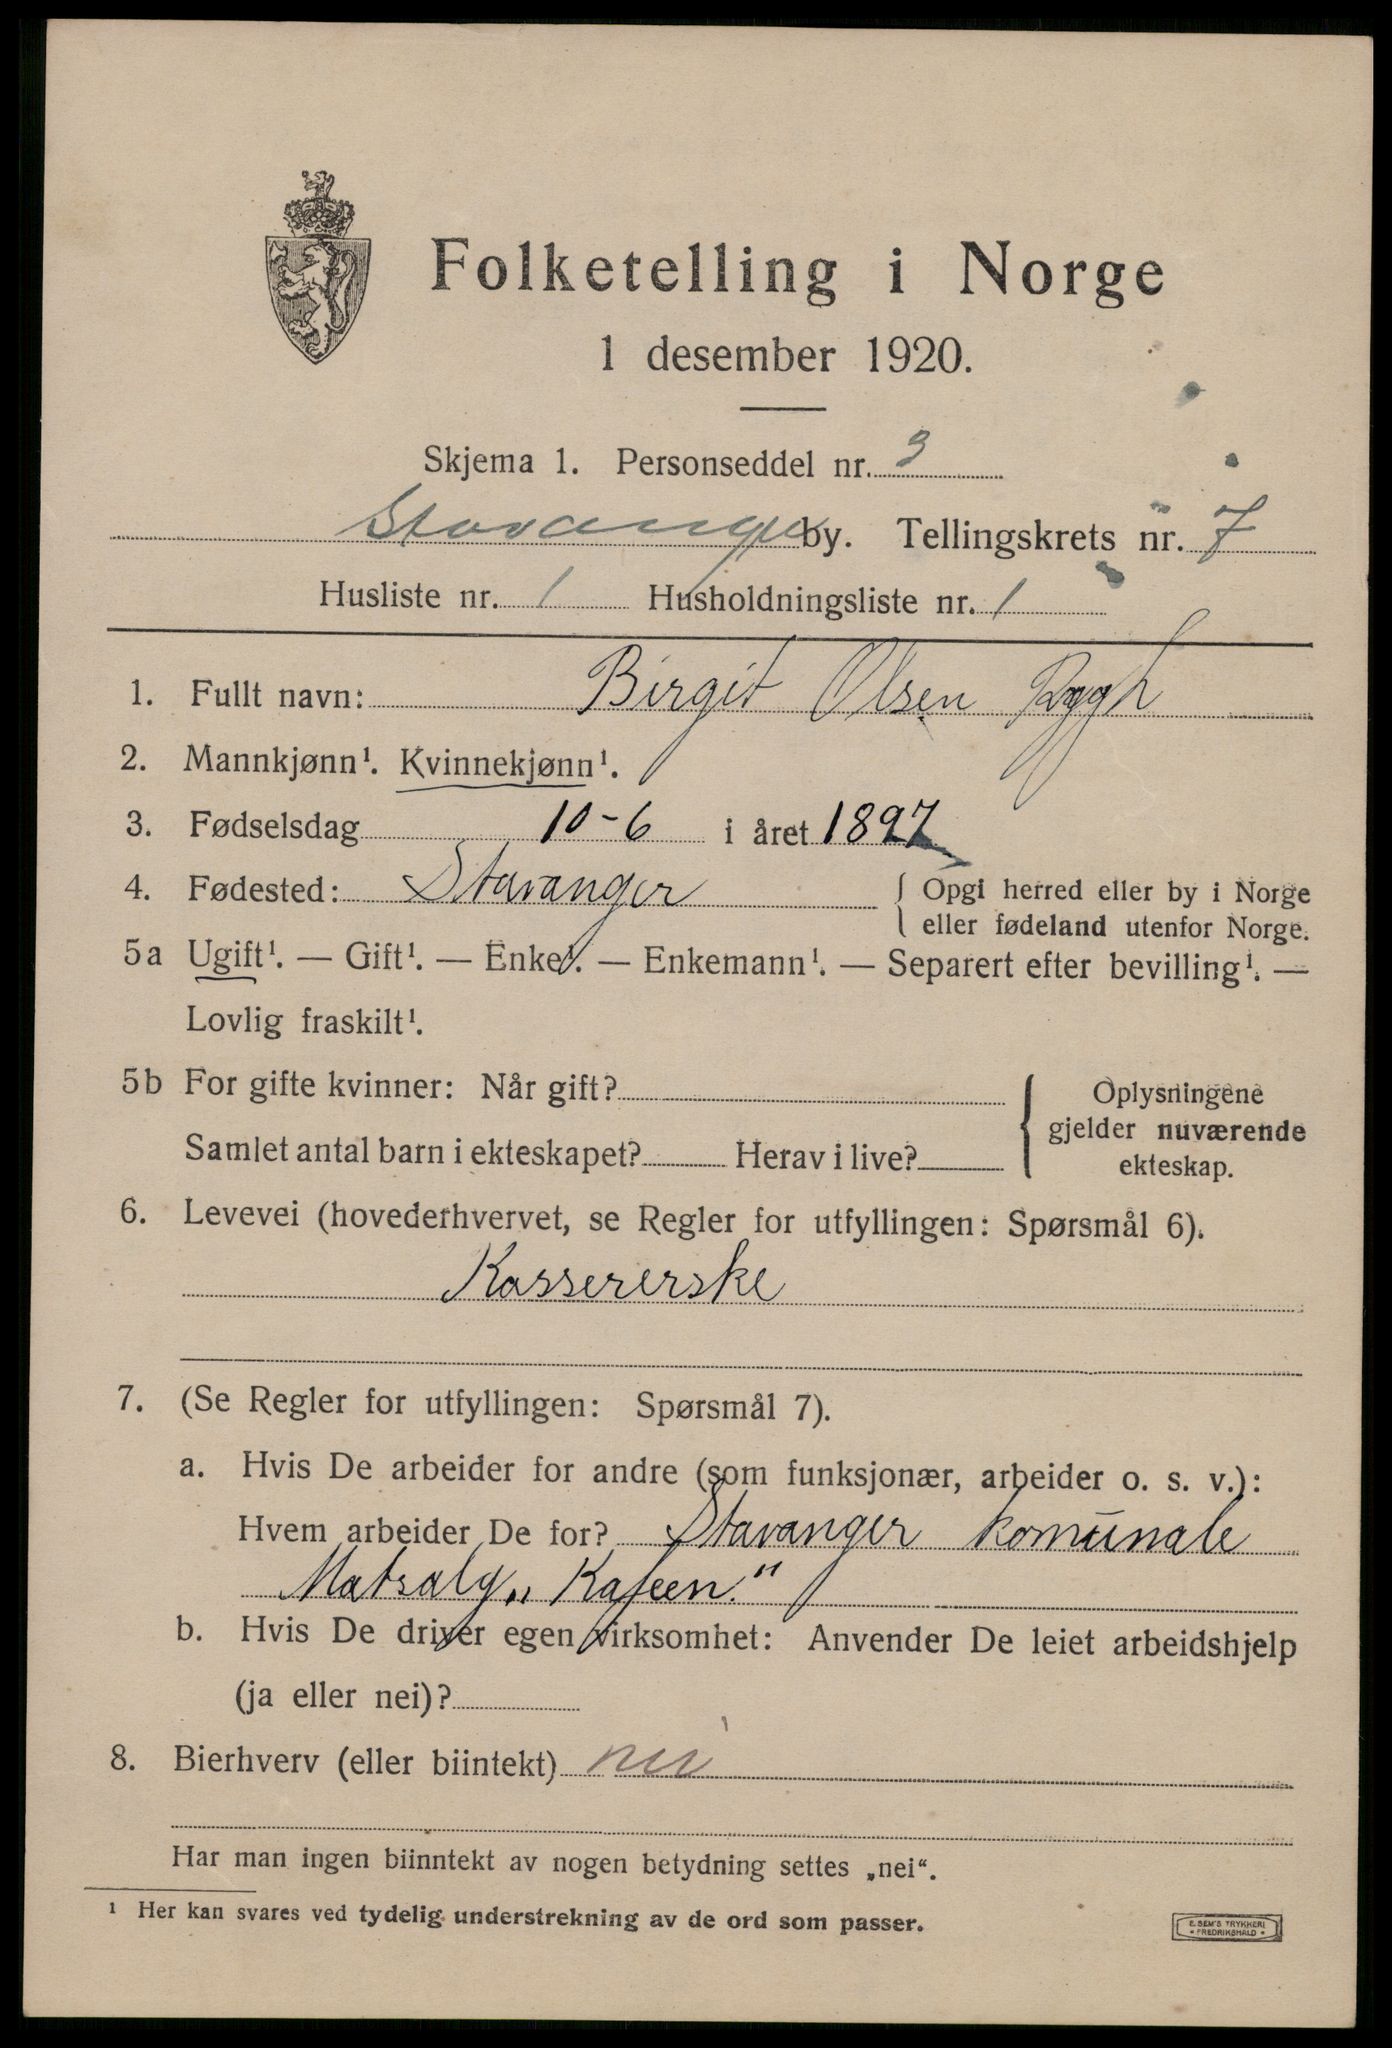 Folketelling i Norge
1 desember 1920.
Skjema 1. Personseddel nr. 3
Stavanger by. Tellingskrets nr. 7
Husliste nr. 1 Husholdningsliste nr. 1
1. Fullt navn: Birgit Olsen Rygh
2. Mannkjønn¹. Kvinnekjønn¹.
3. Fødselsdag 10-6 i året 1897
4. Fødested: Stavanger { Opgi herred eller by i Norge
eller fødeland utenfor Norge.
5a Ugift¹. — Gift¹. — Enke¹. — Enkemann¹. — Separert efter bevilling¹. —
Lovlig fraskilt¹.
5b For gifte kvinner: Når gift? { Oplysningene
gjelder nuværende
Samlet antal barn i ekteskapet? Herav i live? ekteskap.
6. Levevei (hovederhvervet, se Regler for utfyllingen: Spørsmål 6).
Kassererske
7. (Se Regler for utfyllingen: Spørsmål 7).
a. Hvis De arbeider for andre (som funksjonær, arbeider o. s. v.):
Hvem arbeider De for? Stavanger komunale
Matsalg „Kafeen."
b. Hvis De driver egen virksomhet: Anvender De leiet arbeidshjelp
(ja eller nei)?
8. Bierhverv (eller biintekt) nei
Har man ingen biinntekt av nogen betydning settes „nei“.
¹ Her kan svares ved tydelig understrekning av de ord som passer.
E. SEM'S TRYKKERI
* FREDRIKSHALD *